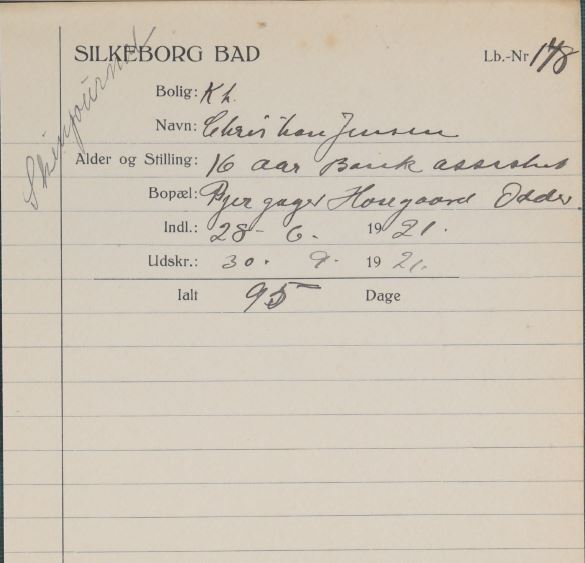 SILKEBORG BAD
Lb.-Nr 148
Bolig: Kh.
Navn: Christian Jensen
Alder og Stilling: 16 aar Bank assistent
Bopæl: Hosegaard Odder.
Indl.: 28 - 6. 1921.
Udskr.: 30. 9. 1921.
Ialt 95 Dage